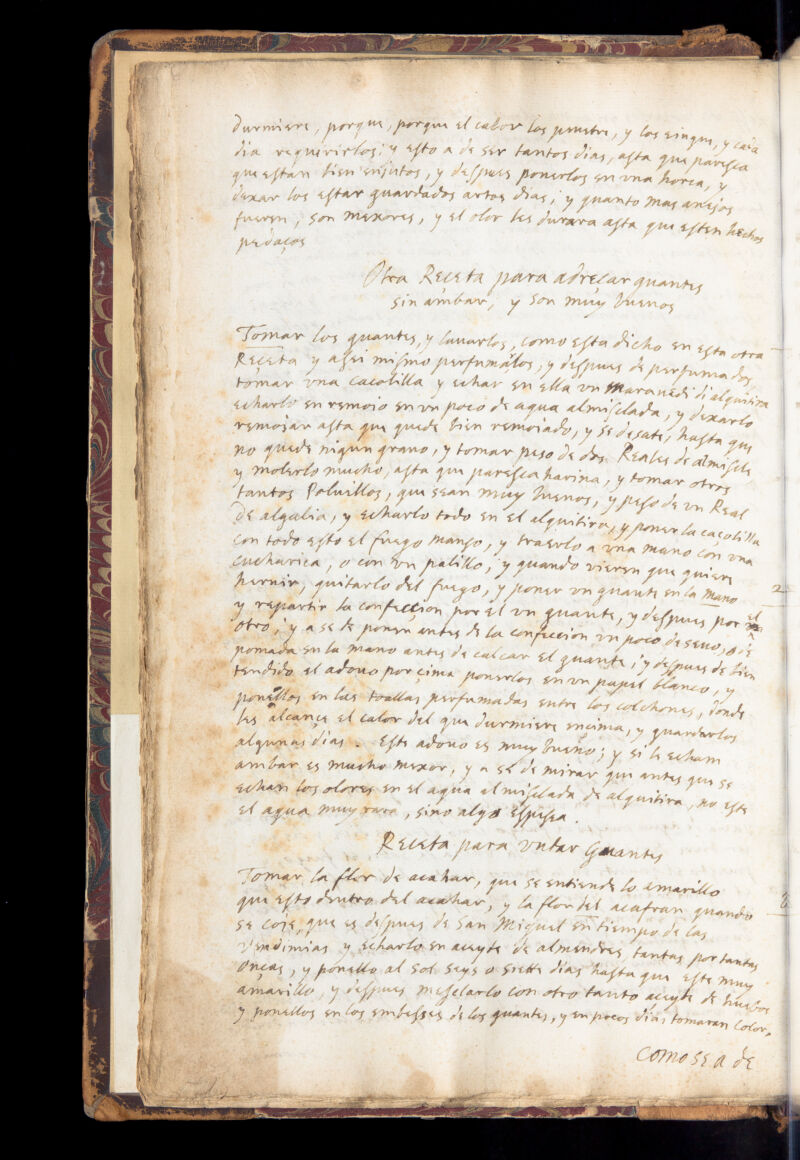 durmiere, porque, porque el calor los penetre, y los einque, y cada
dia requerirlos; y esto a de ser tantos dias, asta que paresca
que estan bien enjutos, y despues ponerlos en vna horca, y
dexar los estar guardados artos dias; y quanto mas añejos
fueren, son mexores, y el olor les durara asta que esten hechos
pedaços
Otra Receta para adreçar guantes
sin ambar, y son muy buenos
Tomar los guantes, y lavarlos, como esta dicho en esta otra
Receta y assi mismo perfumallos, y despues de perfumados,
tomar vna caçolilla y echar en ella vn maravedi di alquitira
echarlo en remojo en vn poco de agua almisclada, y dexarlo
remojar asta que quede bien remojado, y se desate, hasta que
no quede nigun grano, y tomar peso de dos Reales de almiscle
y molerlo mucho, asta que paresca harina, y tomar otros
tantos Polvillos, que sean muy buenos, y peso de vn Real
de algalia, y echarlo todo en el alquitira, y poner la caçolilla
con todo esto el fuego manso, y traerlo a vna mano con vna
cucharica, o con vn palillo; y quando vieren que quiere
hervir, quitarlo del fuego, y poner vn guante en la mano
y repartir la confeccion por el vn guante, y despues por el
otro; y a se de poner antes de la confeccion vn poco de sevo, o de
pomada en la mano antes de calçar el guante; y despues de bien
tendido el adovo por çima ponerlos en vn papel blanco, y
ponellos en las toallas perfumadas entre los colchones, donde
les alcançe el calor del que durmiere encima, y guardarlos
algunas dias. Este adovo es muy bueno; y si le echam
ambar es mucho mexor, y a se de mirar que antes que se
echan los olores en el agua almisclada de alquitira, no este
el agua muy rara, sino algo espesa.
Receta para vntar Guantes
Tomar la flor de acahar, que se entiende lo amarillo
que esto dentro del acahar, y la flor del açafran quando
se coje, que es despues de San Miguel en tiempo de las
Vendimias y echarlo en aceyte de almendres, tantas por tantas
onças, y ponello al sol seys o siette dias hasta que este muy
amarillo, y despues mesclarlo con otro tanto aceyte de huebos
y ponellos en los embesses de los guantes, y en pocos dias tomaran color,
como se a de